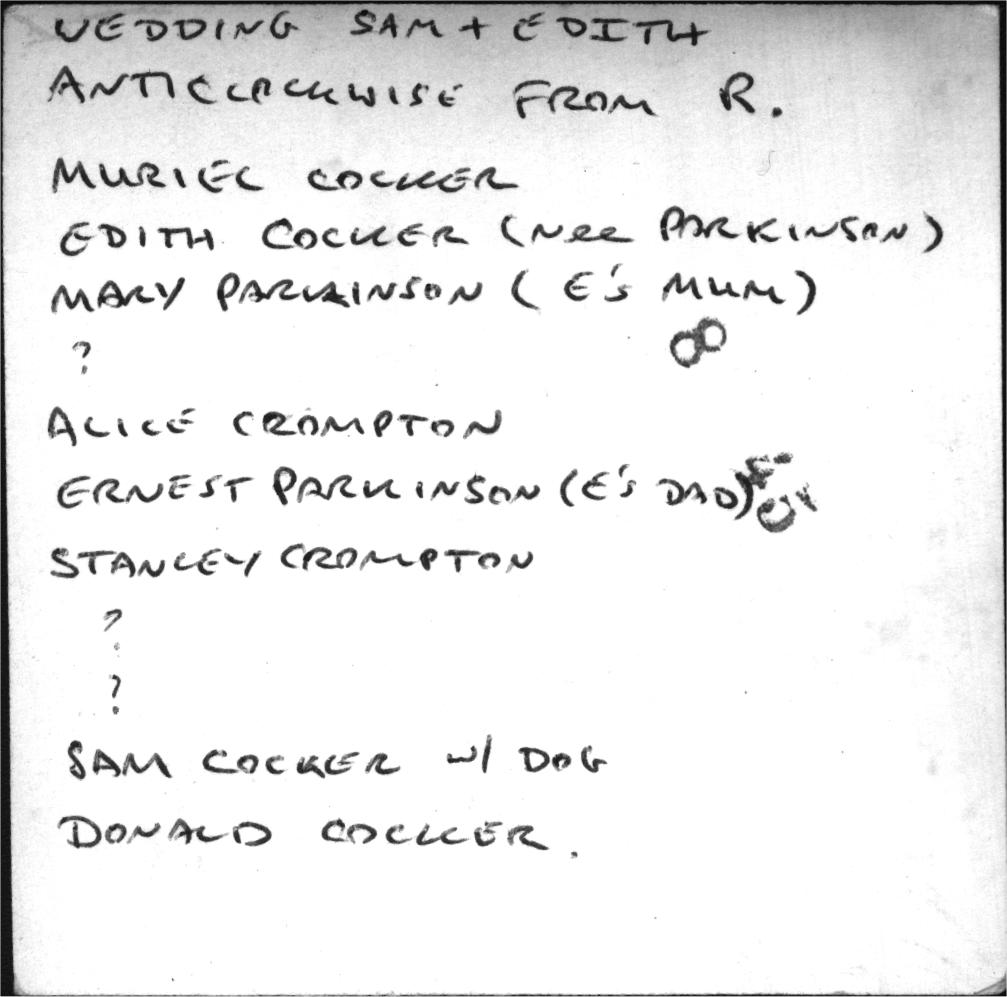 WEDDING SAM + EDITH
ANTICLOCKWISE FROM R.
MURIEL COCKER
EDITH COCKER (nee PARKINSON)
MARY PARKINSON (E's MUM)
?
ALICE CROMPTON
ERNEST PARKINSON (E's DAD)
STANLEY CROMPTON
?
?
SAM COCKER w/ DOG
DONALD COCKER.